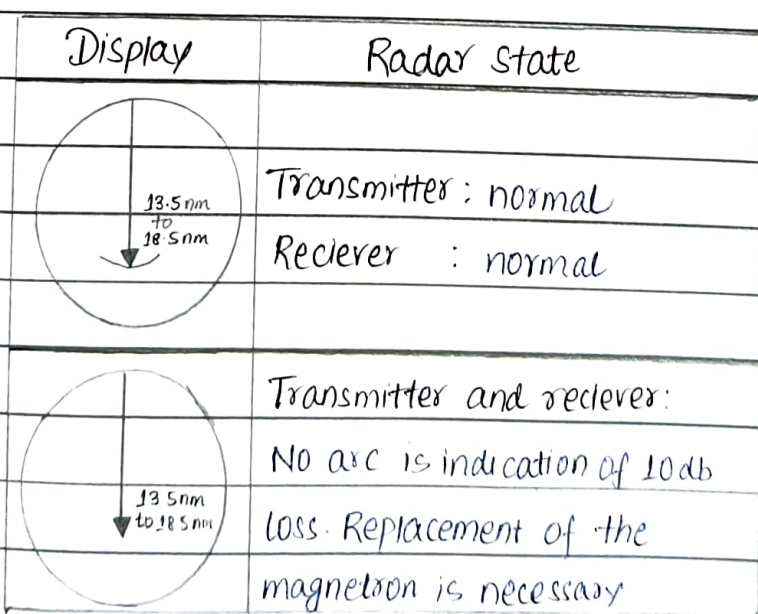 Display Radar State
13.5nm
to
18.5nm
Transmitter : normal
Reciever : normal
13 5nm
to 18 5nm
Transmitter and reciever:
No arc is indication of 10db
loss. Replacement of the
magnetron is necessary